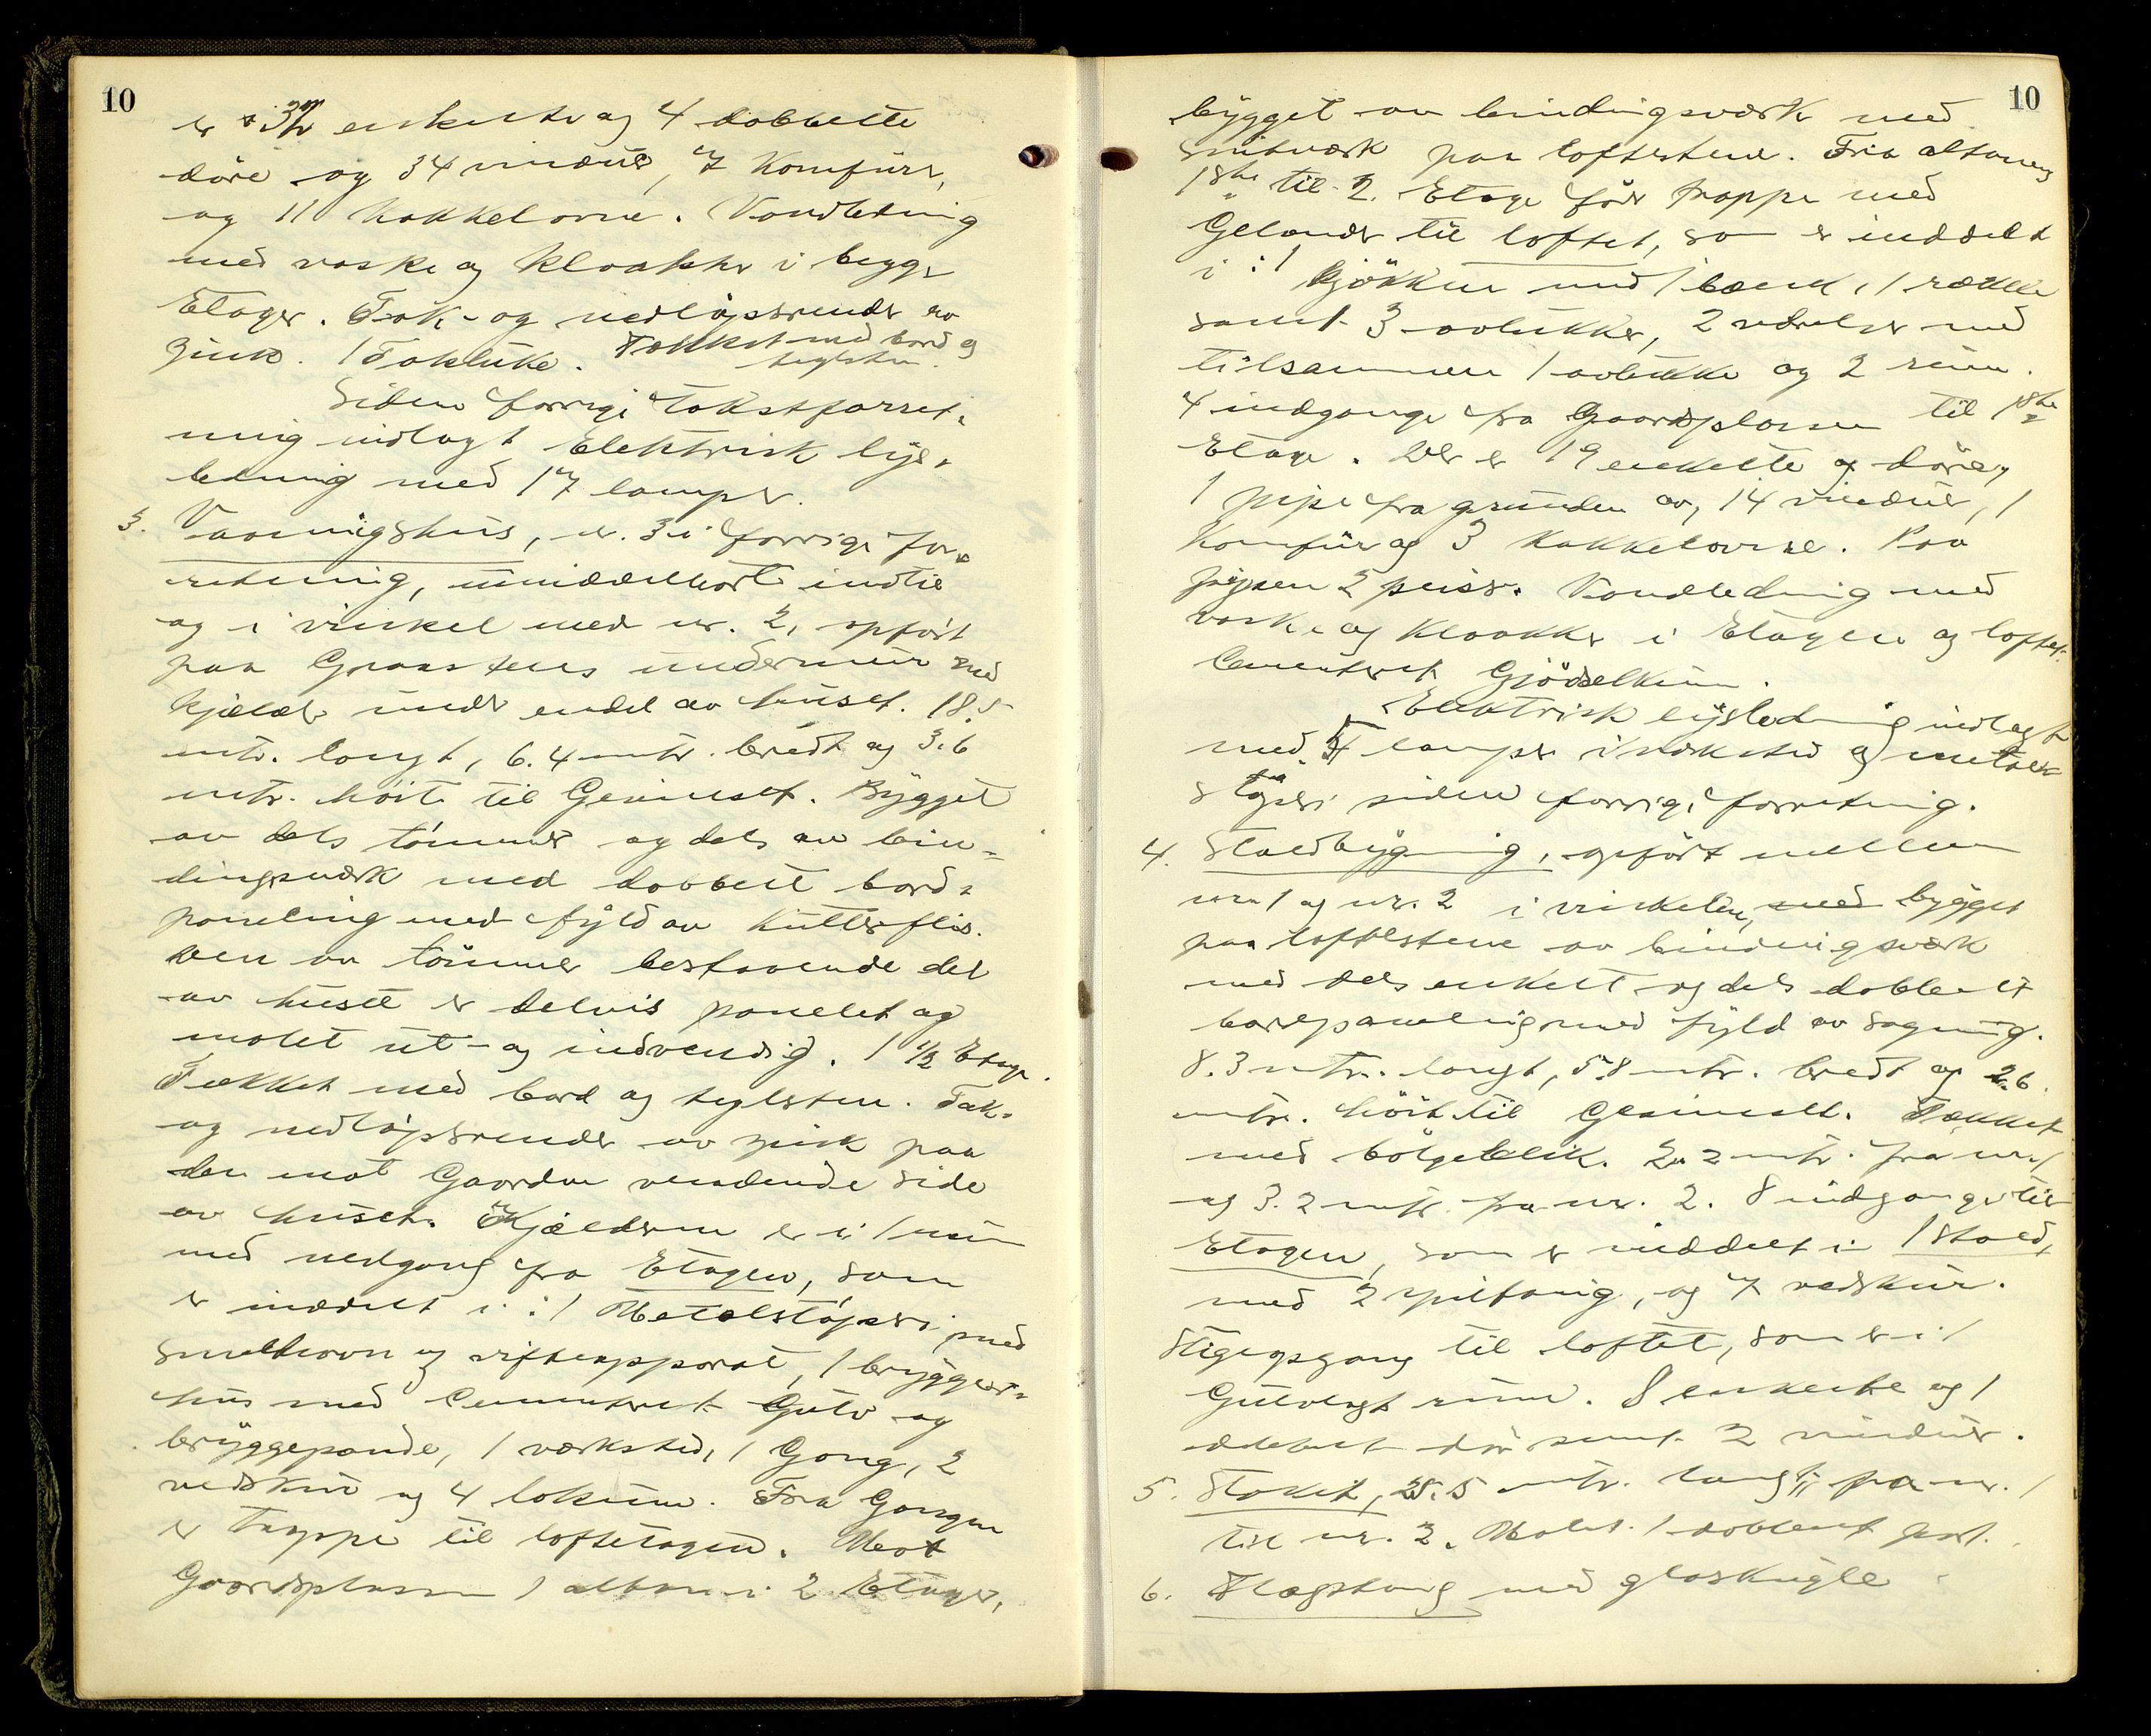 10
er 3 enkelte og 4 dobbelte
døre og 34 vinduer, 7 Komfürer,
og 11 kakkelovne. Vandledning
med vaske og kloakker i begge
Etager. Tak- og nedløpsrender av
Zink. 1 Takluke. Tækket med bord og
teglsten.
Siden forrige takstforret-
ning indlagt Elektrisk lys-
ledning med 17 lamper.
3. Vaaningshus, nr. 3 i forrige for-
retning, umiddelbart indtil
og i vinkel med nr. 2, opført
paa Graastens undermur med
kjælder under endel av huset. 18.5
mtr. langt, 6.4 mtr. bredt og 3.6
mtr. høit til Gesimset. Bygget
av dels tømmer og dels av bin-
dingsverk med dobbelt bord-
paneling med fyld av kutterflis.
Den av tømmer bestaaende del
av huset er delvis panelet og
malet ut- og indvendig. 1 1/2 Etage.
Tækket med bord og teglsten. Tak-
og nedløpsrender av zink paa
den mot Gaarden vendende side
av huset. Kjælderen er i 1 rum
med nedgang fra Etagen, som
er inddelt i: 1 Metalstøperi med
smelteovn og vifteapparat, 1 brygger-
hus med Cementert Gulv og
bryggepande, 1 verksted, 1 Gang, 2
vedskur og 4 lokum. Fra Gangen
er trappe til loftetagen. Mot
Gaardsplassen 1 altan i 2 Etager,
10
bygget av bindingsverk med
snitverk paa loftestene. Fra altanens
1ste til 2. Etage fører trappe med
Gelænder til loftet, som er inddelt
i: 1 kjøkken med 1 bænk, 1 række
samt 3 avlukker, 2 værelser med
tilsammen 1 avlukke og 2 rum.
4 indgange fra Gaardsplassen til 1ste
Etage. Der er 19 enkelte døre,
1 pipe fra grunden av, 14 vinduer, 1
Komfür og 3 Kakkelovne. Paa
pipen 2 peiser. Vandledning med
vaske og Kloakker i Etagen og loftet.
Cementert Gjødselkum.
Elektrisk lysledning indlagt
med lamper i verksted og metal-
støperi siden forrige forretning.
4. Staldbygning, opført mellem
nr. 1 og nr. 2 i vinkelen, med bygget
paa loftestene av bindingsverk
med dels enkelt og dels dobbelt
bordpaneling med fyld av sagmug.
8.3 mtr. langt, 5.8 mtr. bredt og 2.6
mtr. høit til Gesimset. Tækket
med bølgeblik. 2.2 mtr. fra nr. 1
og 3.2 mtr. fra nr. 2. 8 indgange til
Etagen, som er inddelt i: 1 Stald,
med 2 spiltaug, og 7 vedskur.
Stigeopgang til loftet, som er i 1
Gulvlagt rum. 8 enkelte og 1
dobbelt dør samt 2 vinduer.
5. Stakit, 25.5 mtr. langt, fra nr. 1
til nr. 2. Malet. 1 dobbelt port.
6. Flagstang med glaskugle